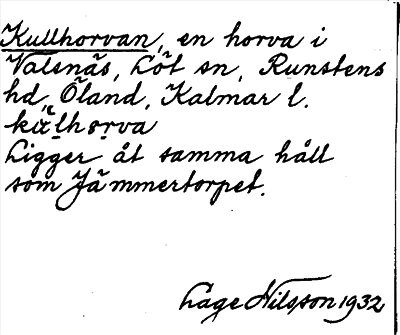 Kullhorvan, en horva i
Valsnäs, Löt sn, Runstens
hd, Öland, Kalmar l.
Ligger åt samma håll
som Jämmertorpet.
Lage Nilsson 1932